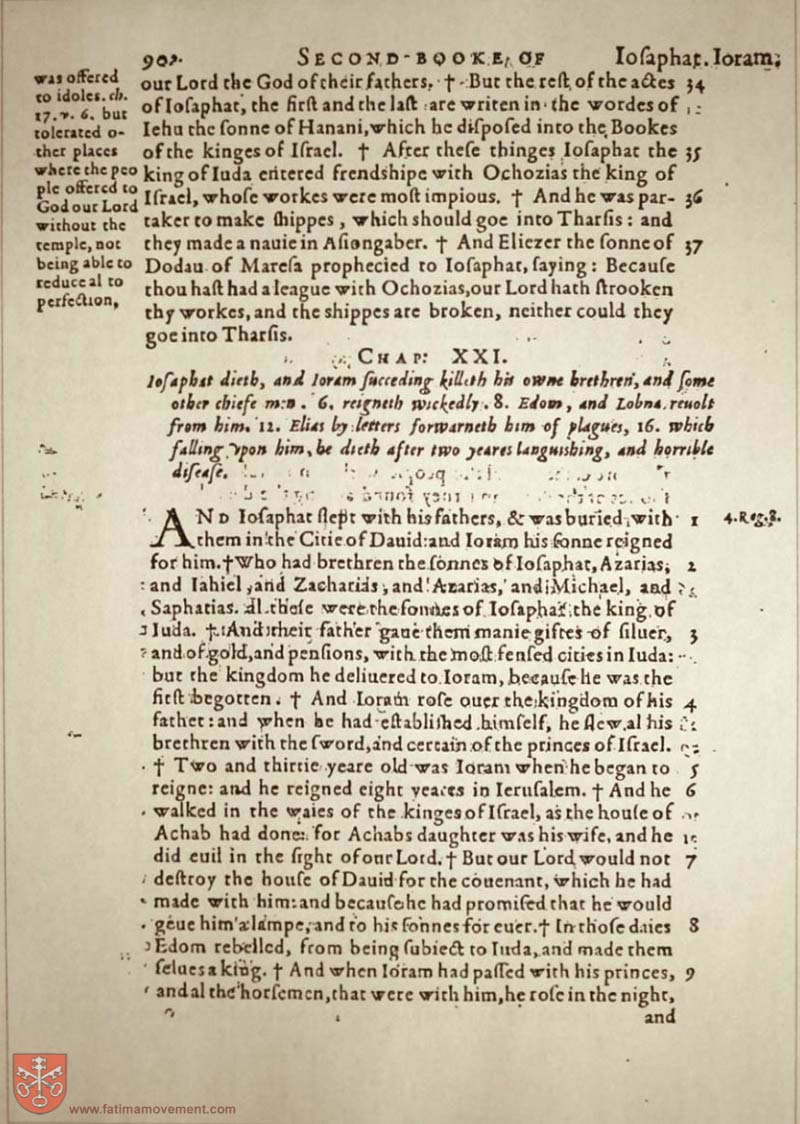 902. SECOND-BOOKE, OF Ioſaphat. Ioram;
was offered
to idoles. ch.
17. v. 6. but
tolerated o-
ther places
where the peo
ple offered to
God our Lord
without the
temple, not
being able to
reduce al to
perfection,
our Lord the God of their fathers. † But the reſt of the actes 34
of Ioſaphat, the firſt and the laſt are writen in the wordes of
Iehu the ſonne of Hanani, which he diſpoſed into the Bookes
of the kinges of Iſrael. † After theſe thinges Ioſaphat the 35
king of Iuda entered frendshipe with Ochozias the king of
Iſrael, whoſe workes were moſt impious. † And he was par- 36
taker to make shippes, which should goe into Tharſis: and
they made a nauie in Aſiongaber. † And Eliezer the ſonne of 37
Dodau of Mareſa prophecied to Ioſaphat, ſaying: Becauſe
thou haſt had a league with Ochozias, our Lord hath ſtrooken
thy workes, and the shippes are broken, neither could they
goe into Tharſis.
CHAP. XXI.
Ioſaphat dieth, and Ioram ſucceding killeth his owne brethren, and ſome
other chiefe men. 6. reigneth wickedly. 8. Edom, and Lobna reuolt
from him. 12. Elias by letters forwarneth him of plagues, 16. which
falling vpon him, he dieth after two yeares languishing, and horrible
diſeaſe.
AND Ioſaphat ſlept with his fathers, & was buried with 1 4. Reg. 8.
them in the Citie of Dauid: and Ioram his ſonne reigned
for him. † Who had brethren the ſonnes of Ioſaphat, Azarias, 2
and Iahiel, and Zacharias, and Azarias, and Michael, and
Saphatias. al theſe were the ſonnes of Ioſaphat the king of
Iuda. † And their father gaue them manie giftes of ſiluer, 3
and of gold, and penſions, with the moſt fenſed cities in Iuda:
but the kingdom he deliuered to Ioram, becauſe he was the
firſt begotten. † And Ioram roſe ouer the kingdom of his 4
father: and when he had eſtablished himſelf, he ſlew al his
brethren with the ſword, and certain of the princes of Iſrael.
† Two and thirtie yeare old was Ioram when he began to 5
reigne: and he reigned eight yeares in Ieruſalem. † And he 6
walked in the waies of the kinges of Iſrael, as the houſe of
Achab had done: for Achabs daughter was his wife, and he
did euil in the ſight of our Lord. † But our Lord would not 7
deſtroy the houſe of Dauid for the couenant, which he had
made with him: and becauſe he had promiſed that he would
geue him a lampe, and to his ſonnes for euer. † In thoſe daies 8
Edom rebelled, from being ſubiect to Iuda, and made them
ſelues a king. † And when Ioram had paſſed with his princes, 9
and al the horſemen, that were with him, he roſe in the night,
and
www.fatimamovement.com